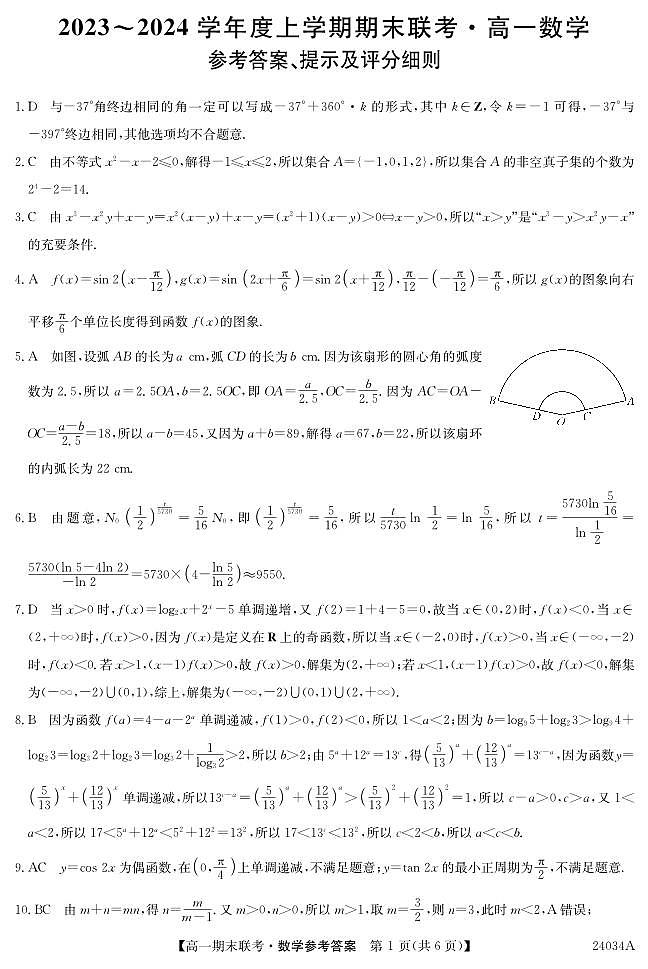 2023～2024 学年度上学期期末联考·高一数学
参考答案、提示及评分细则
1. D 与－37°角终边相同的角一定可以写成－37°＋360°·k 的形式,其中 k∈Z,令 k＝－1 可得,－37°与
－397°终边相同,其他选项均不合题意.
2. C 由不等式 x²－x－2≤0,解得－1≤x≤2,所以集合 A＝{－1,0,1,2},所以集合 A 的非空真子集的个数为
2⁴－2＝14.
3. C 由 x³－x²y＋x－y＝x²(x－y)＋x－y＝(x²＋1)(x－y)>0⇔x－y>0,所以“x>y”是“x³－y>x²y－x”
的充要条件.
4. A f(x)＝sin 2(x－π/12),g(x)＝sin (2x＋π/6)＝sin 2(x＋π/12),π/12－(－π/12)＝π/6,所以 g(x)的图象向右
平移π/6个单位长度得到函数 f(x)的图象.
5. A 如图,设弧 AB 的长为 a cm,弧 CD 的长为 b cm. 因为该扇形的圆心角的弧度
数为 2.5,所以 a＝2.5OA,b＝2.5OC,即 OA＝a/2.5,OC＝b/2.5. 因为 AC＝OA－
OC＝(a－b)/2.5＝18,所以 a－b＝45,又因为 a＋b＝89,解得 a＝67,b＝22,所以该扇环
的内弧长为 22 cm.
B D O C A
6. B 由题意,N₀(1/2)^(t/5730)＝5/16 N₀,即(1/2)^(t/5730)＝5/16,所以 t/5730 ln 1/2＝ln 5/16,所以 t＝(5730ln 5/16)/(ln 1/2)＝
5730(ln 5－4ln 2)/(－ln 2)＝5730×(4－ln 5/ln 2)≈9550.
7. D 当 x>0 时,f(x)＝log₂x＋2ˣ－5 单调递增,又 f(2)＝1＋4－5＝0,故当 x∈(0,2)时,f(x)<0,当 x∈
(2,＋∞)时,f(x)>0,因为 f(x)是定义在 R 上的奇函数,所以当 x∈(－2,0)时,f(x)>0,当 x∈(－∞,－2)
时,f(x)<0. 若 x>1,(x－1)f(x)>0,故 f(x)>0,解集为(2,＋∞);若 x<1,(x－1)f(x)>0,故 f(x)<0,解集
为(－∞,－2)∪(0,1),综上,解集为(－∞,－2)∪(0,1)∪(2,＋∞).
8. B 因为函数 f(a)＝4－a－2ᵃ 单调递减,f(1)>0,f(2)<0,所以 1<a<2;因为 b＝log₉5＋log₂3>log₉4＋
log₂3＝log₃2＋log₂3＝log₃2＋1/log₃2>2,所以 b>2;由 5ᵃ＋12ᵃ＝13ᶜ,得(5/13)ᵃ＋(12/13)ᵃ＝13ᶜ⁻ᵃ,因为函数 y＝
(5/13)ˣ＋(12/13)ˣ 单调递减,所以13ᶜ⁻ᵃ＝(5/13)ᵃ＋(12/13)ᵃ>(5/13)²＋(12/13)²＝1,所以 c－a>0,c>a,又 1<
a<2,所以 17<5ᵃ＋12ᵃ<5²＋12²＝13²,所以 17<13ᶜ<13²,所以 c<2<b,所以 a<c<b.
9. AC y＝cos 2x 为偶函数,在(0,π/4)上单调递减,不满足题意;y＝tan 2x 的最小正周期为π/2,不满足题意.
10. BC 由 m＋n＝mn,得 n＝m/(m－1). 又 m>0,n>0,所以 m>1,取 m＝3/2,则 n＝3,此时 m<2,A 错误;
【高一期末联考·数学参考答案 第 1 页(共 6 页)】 24034A